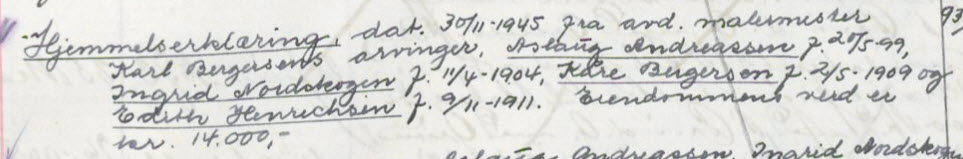 Hjemmelserklæring, dat. 30/11-1945 fra avd. malermester 93
Karl Bergersens arvinger, Aslaug Andreassen f. 20/5-99,
Ingrid Nordskogen f. 11/4-1904, Kåre Bergersen f. 2/5-1909 og
Edith Henrichsen f. 9/11-1911. Eiendommens verd er
kr. 14.000,-
Aslaug Andreassen, Ingrid Nordskogen